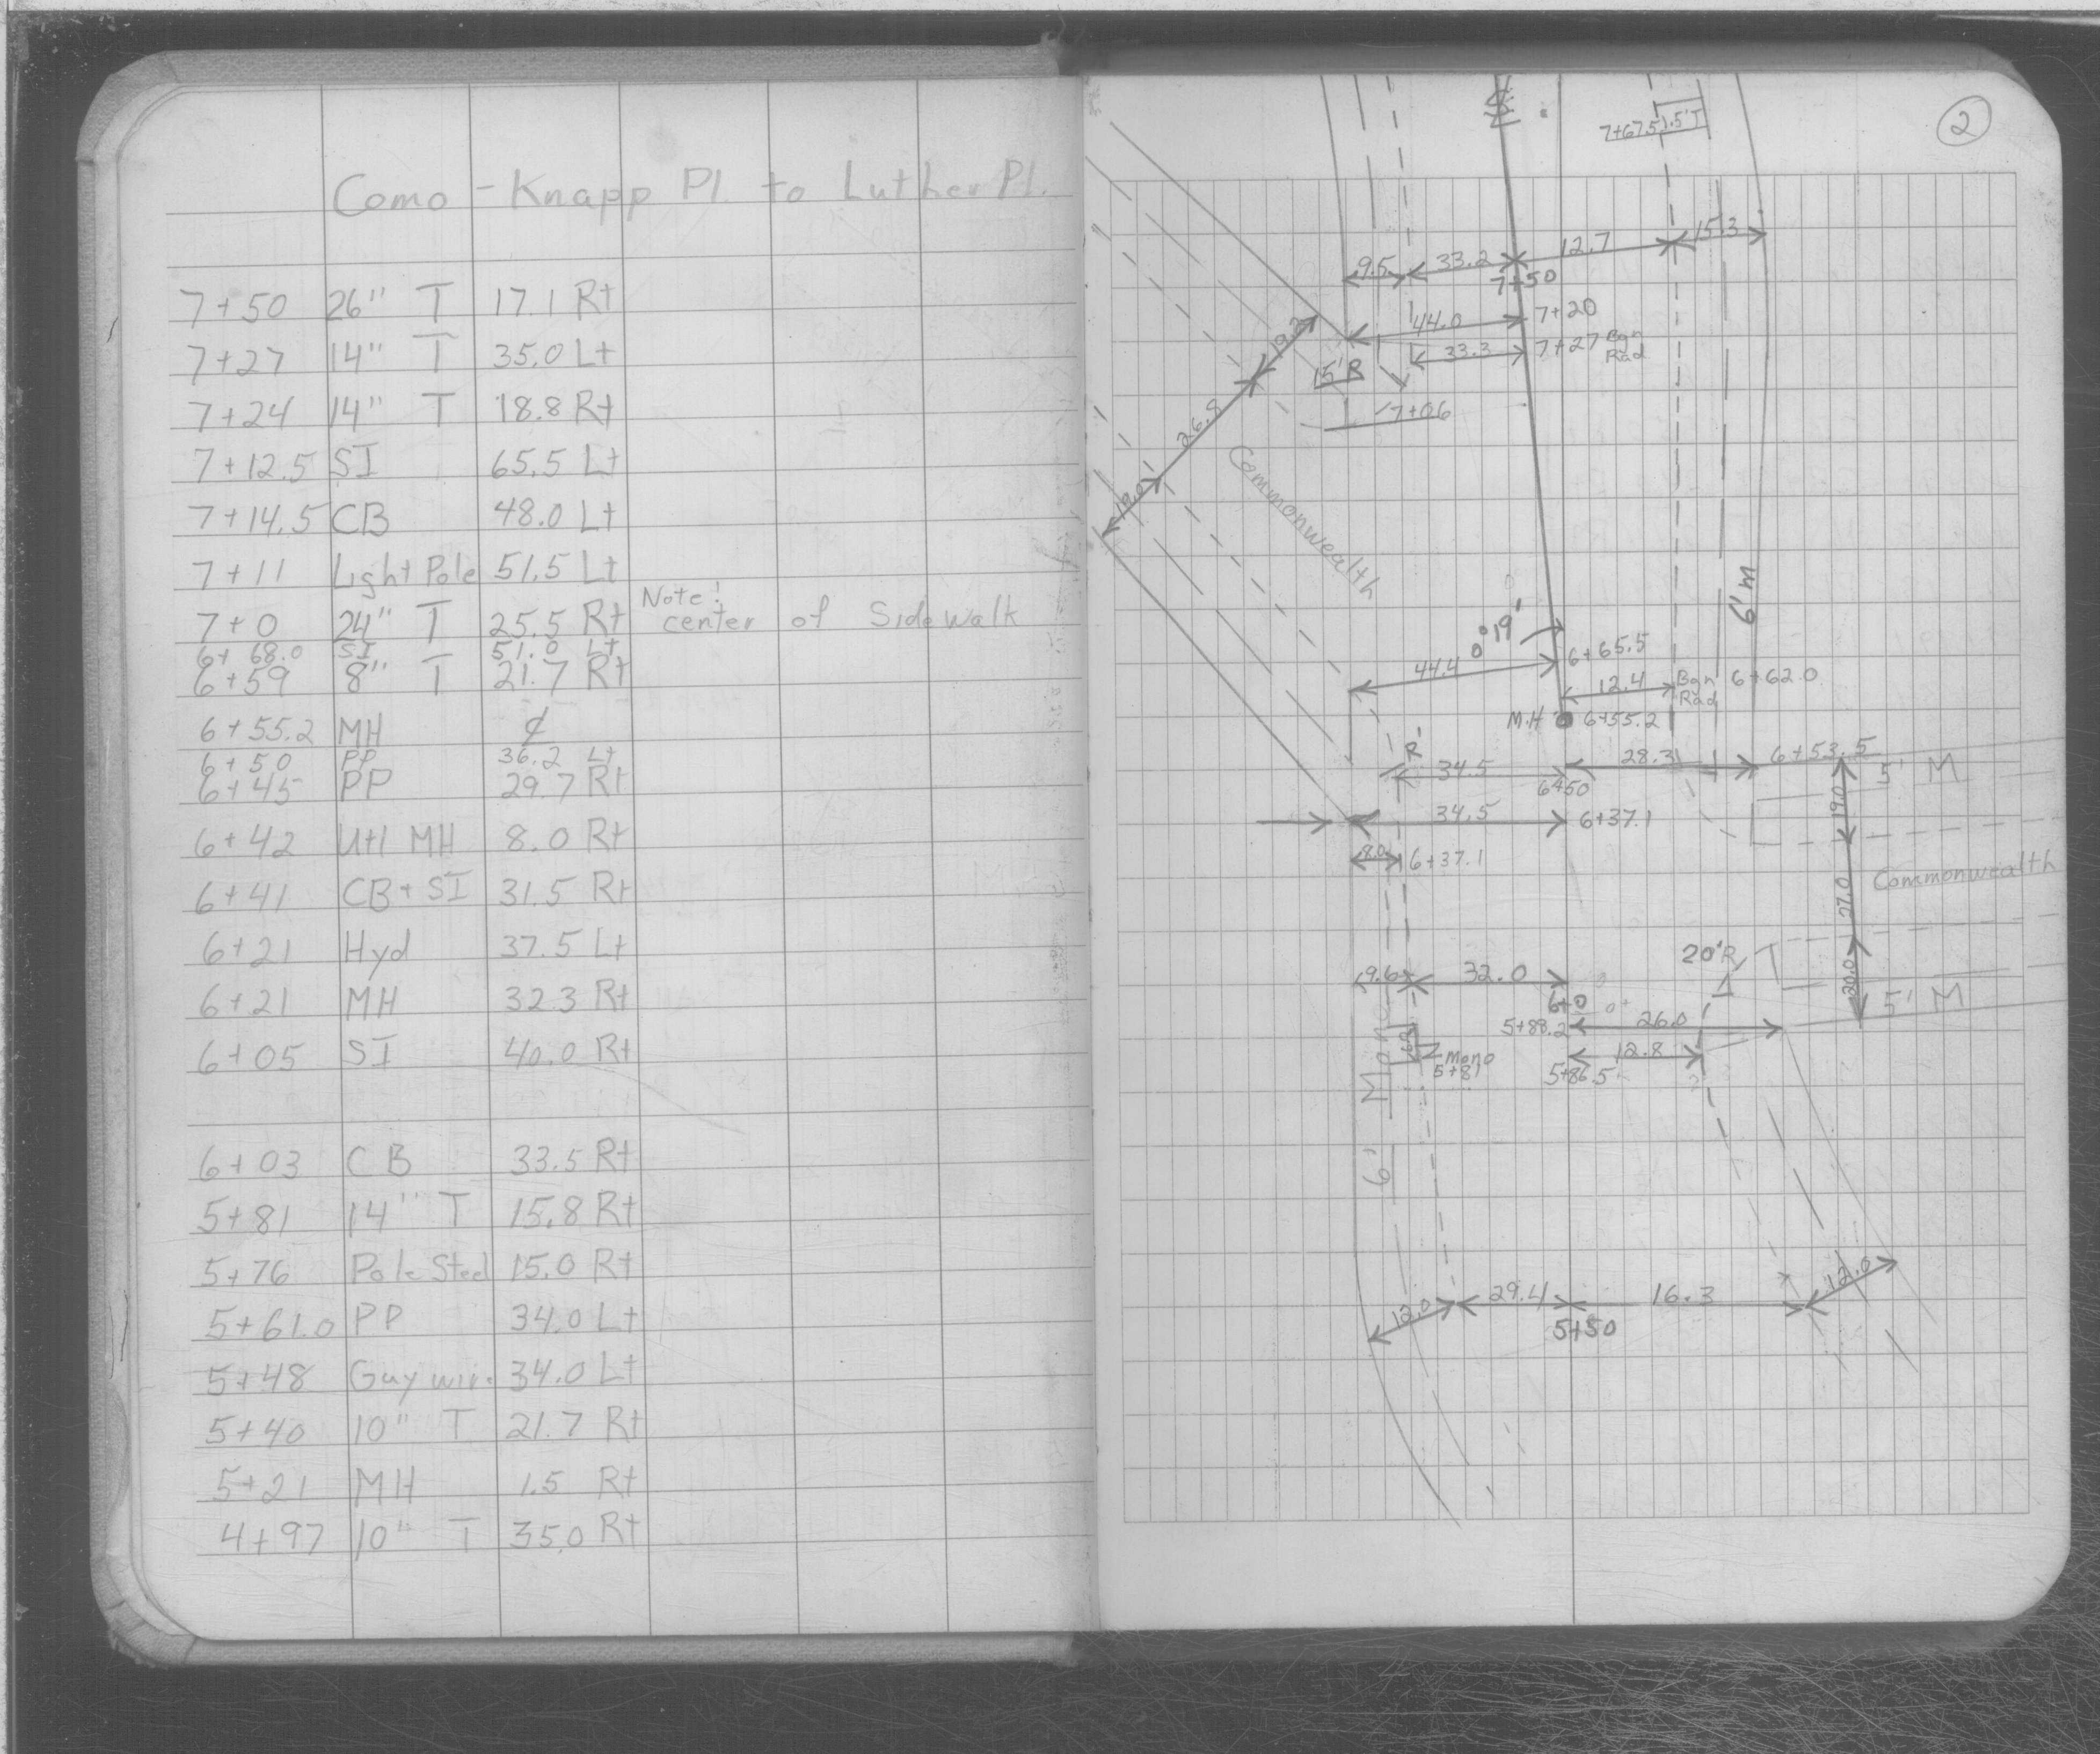 Como - Knapp Pl. to Luther Pl.
7+50 26" T 17.1 Rt
7+27 14" T 35.0 Lt
7+24 14" T 18.8 Rt
7+12.5 SI 65.5 Lt
7+14.5 CB 48.0 Lt
7+11 Light Pole 51.5 Lt
Note!
7+0 24" T 25.5 Rt center of Sidewalk
6+68.0 SI 51.0 Lt
6+59 8" T 21.7 Rt
6+55.2 MH ₵
6+50 PP 36.2 Lt
6+45 PP 29.7 Rt
6+42 Utl MH 8.0 Rt
6+41 CB+SI 31.5 Rt
6+21 Hyd 37.5 Lt
6+21 MH 32.3 Rt
6+05 SI 40.0 Rt
6+03 CB 33.5 Rt
5+81 14" T 15.8 Rt
5+76 Pole Steel 15.0 Rt
5+61.0 PP 34.0 Lt
5+48 Guy wire 34.0 Lt
5+40 10" T 21.7 Rt
5+21 MH 1.5 Rt
4+97 10" T 35.0 Rt
2
7+67.5 1.5'T
9.5 33.2 12.7 15.3
7+50
44.0 7+20
33.3 7+27 Bgn Rad
15'R
7+06
26.8
19.0
Commonwealth
6' M
0°19'
44.4 6+65.5
12.4 Bgn Rad 6+62.0
M.H 6+55.2
28.3 6+53.5
34.5 5' M
6+50
19.0
34.5 6+37.1
9.0 6+37.1
27.0 Commonwealth
20'R
9.6 32.0
20.0
6+0 5' M
5+88.2 26.0
12.8
Mono
5+81
5+86.5
6' Mono
12.0 29.4 16.3 12.0
5+50